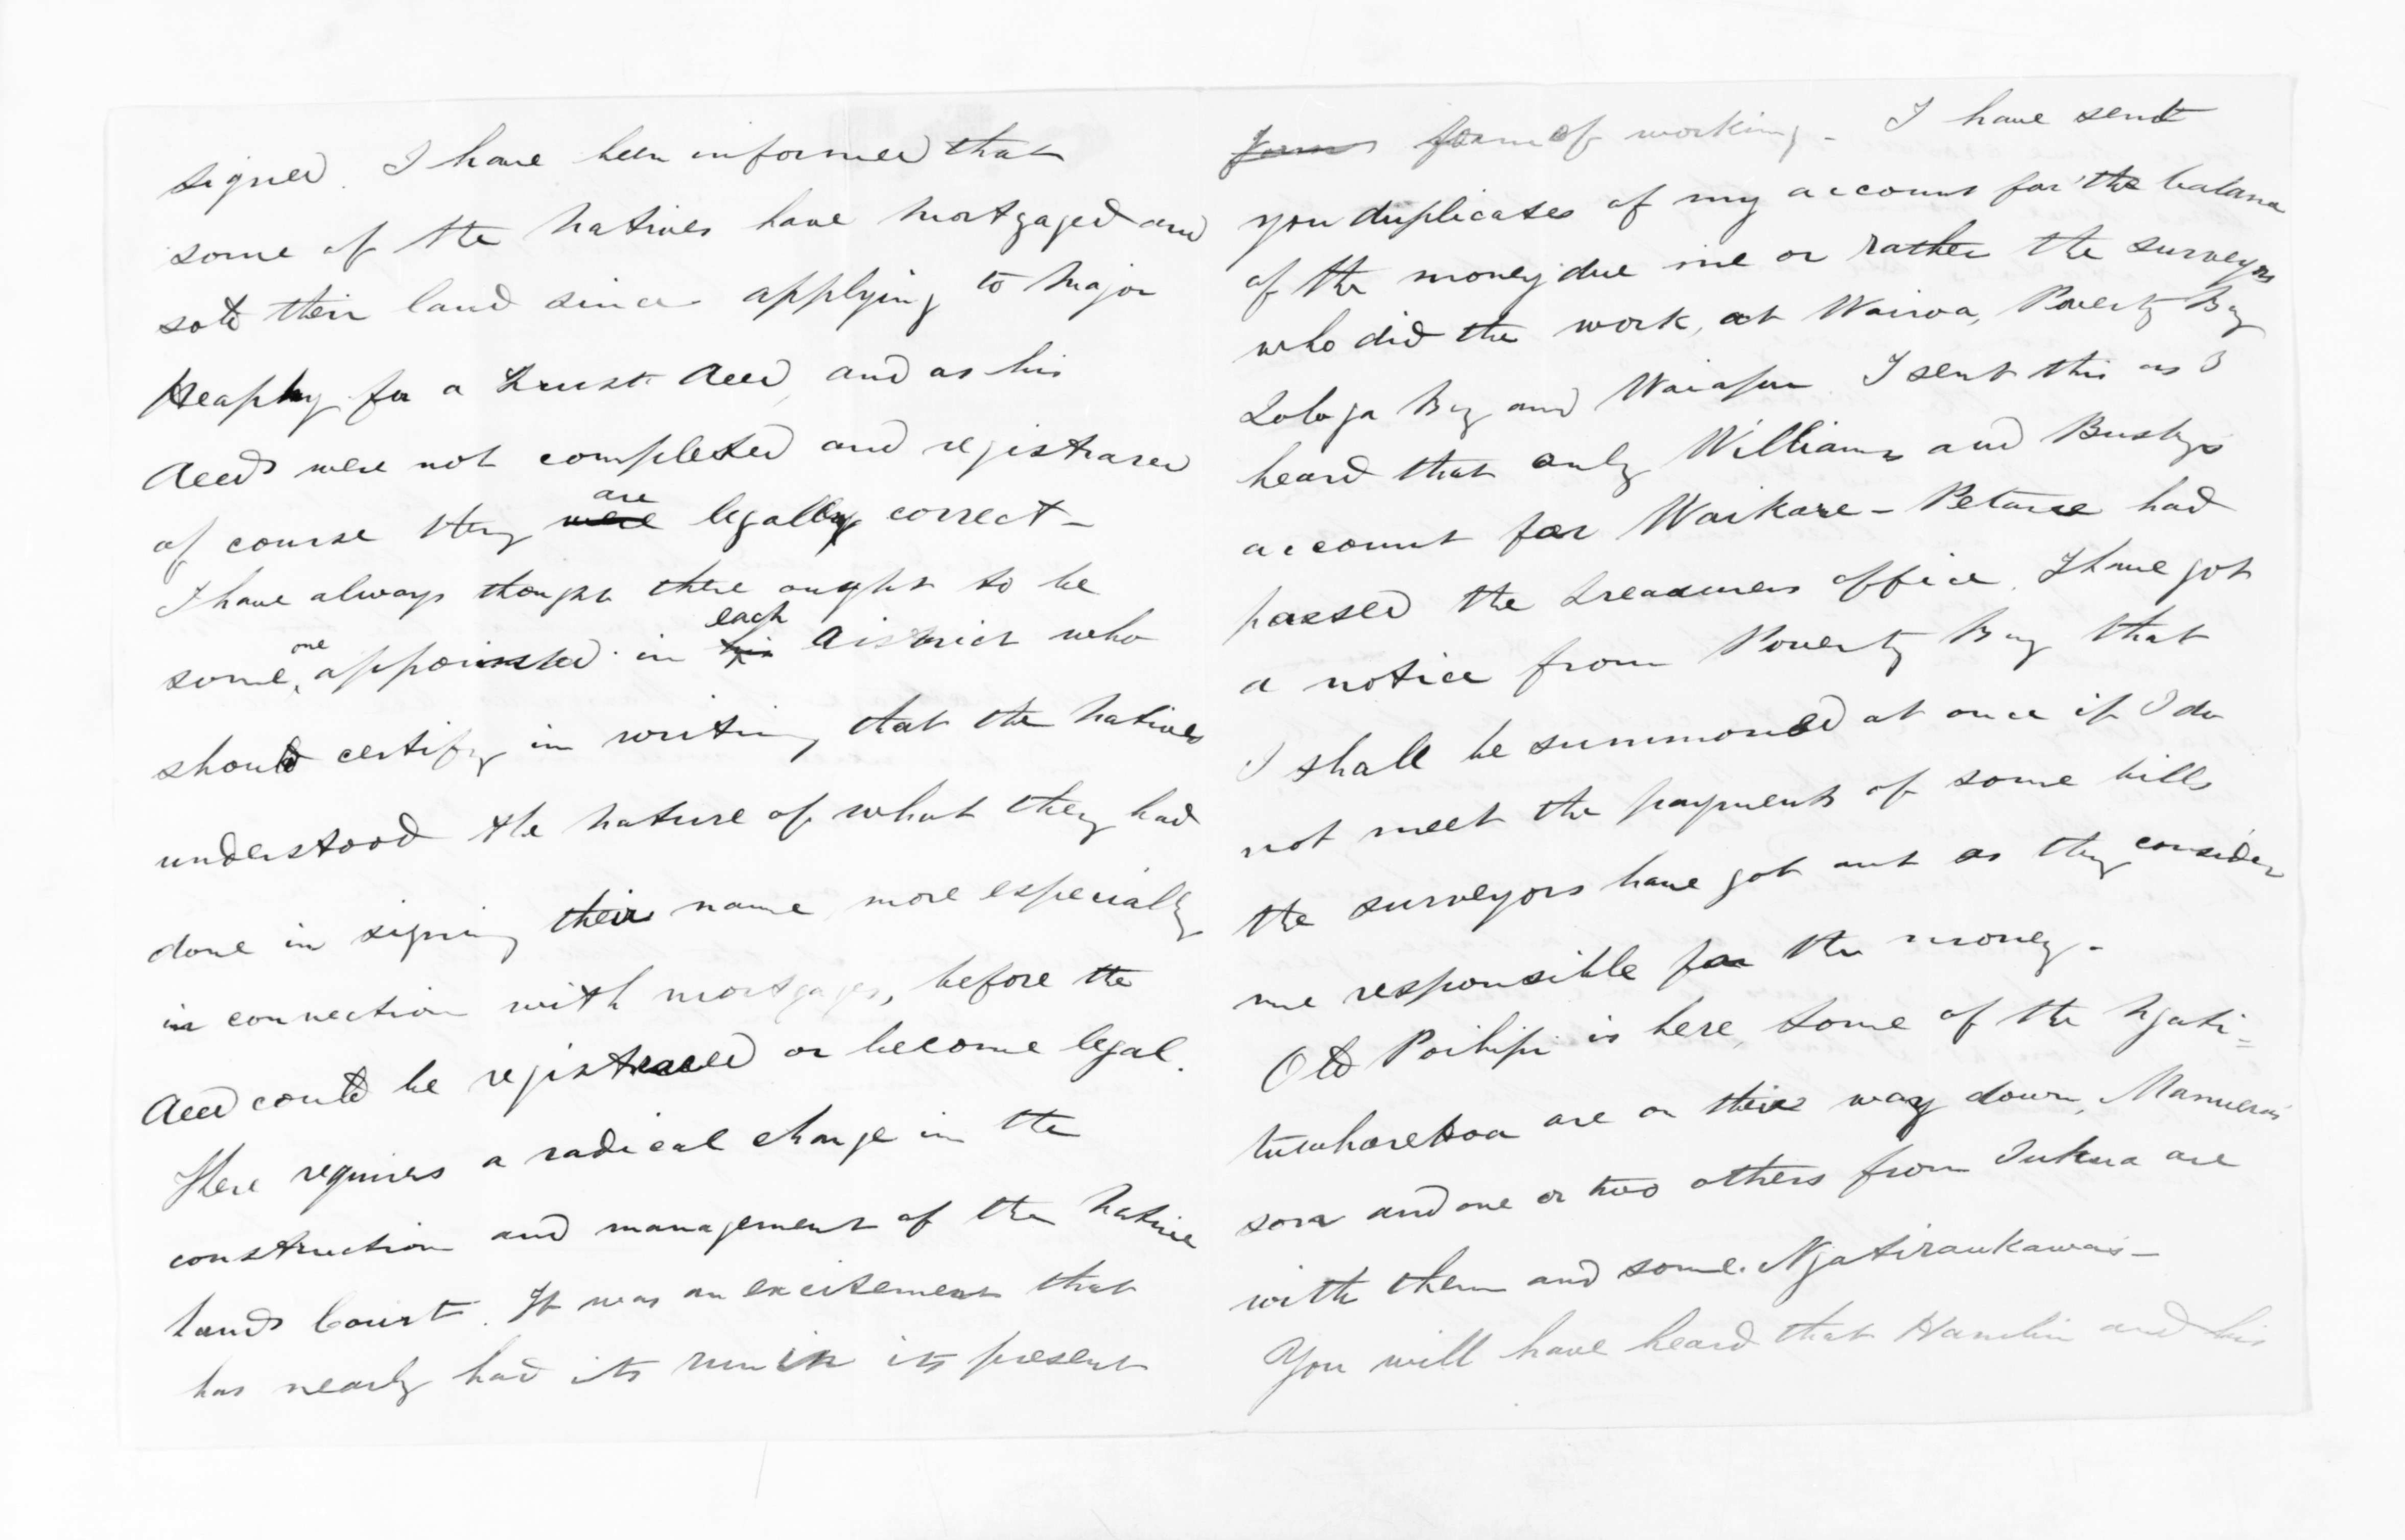 signed. I have been informed that
some of the Natives have mortgaged and
sold their land since applying to Major
Heaphy for a trust deed, and as his
deeds were not completed and registrared
of course they were are legally correct -
I have always thought there ought to be
some one appointed in his each district who
should certify in writing that the Natives
understood the nature of what they had
done in signing their name more especially
in connection with mortgages, before the
deed could be registrared or become legal.
There requires a radical change in the
construction and management of the Native
Lands Court. It was an excitement that
has nearly had its run in its present
form of working - I have sent
you duplicates of my account for the balance
of the money due me or rather the surveyors
who did the work, at Wairoa, Poverty Bay
Tologa Bay and Waiapu. I sent this as I
heard that only Williams and Busbys
account for Waikare-Petane had
passed the Treasurers office. I have got
a notice from Poverty Bay that
I shall be summoned at once if I do
not meet the payments of some bills
the surveyors have got out as they consider
me responsible for the money -
Old Poihipi is here, some of the Ngati=
tuwharetoa are on their way down, Manuera's
son and one or two others from Tukua are
with them and some Ngatiraukawas -
You will have heard that Hamlin and his